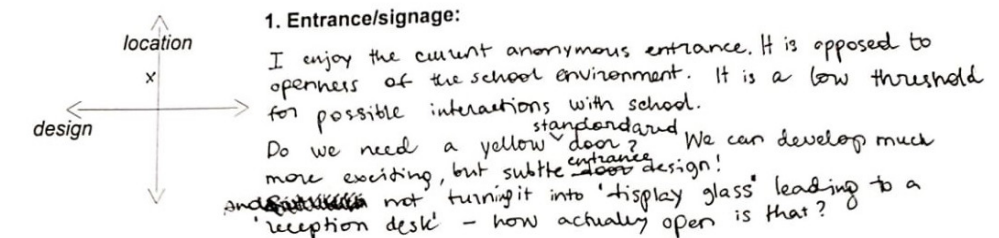 location
x
design
1. Entrance/signage:
I enjoy the current anonymous entrance. It is opposed to
openness of the school environment. It is a low threshold
for possible interactions with school.
Do we need a yellow standardard door? We can develop much
more exciting, but subtle door entrance design!
and not turning it into 'display glass' leading to a
'reception desk' – how actually open is that?